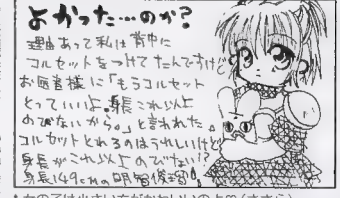 よかった…のか?
理由あって私は背中に
コルセットをつけてたんですけど
お医者様に「もうコルセット
とっていいよ。身長これ以上
のびないから。」と言われた。
コルセットとれるのはうれしいけど
身長がこれ以上のびない!?
身長149cmの明智俊瑠
女の子は小さい方がかわいいのよ